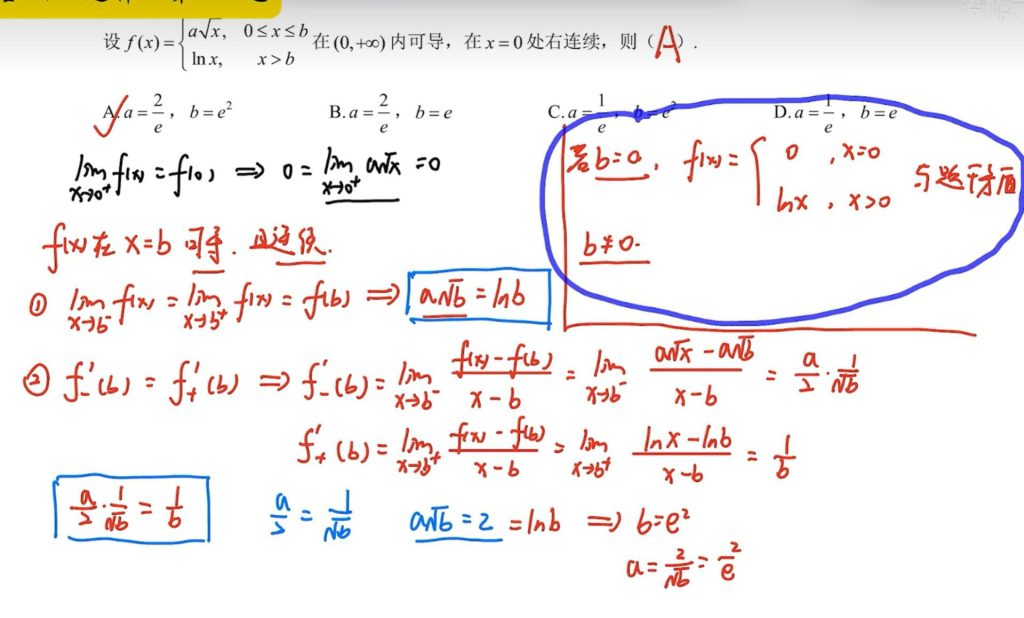 设 f(x)={a√x, 0≤x≤b; ln x, x>b 在(0,+∞)内可导，在x=0处右连续，则（A）.
A.a=2/e，b=e² B.a=2/e，b=e C.a=1/e，b=e² D.a=1/e，b=e
lim_{x→0⁺} f(x)=f(0) ⇒ 0=lim_{x→0⁺} a√x=0
若b=0, f(x)={0, x=0; lnx, x>0 与题干矛盾
b≠0.
f(x)在x=b可导.且连续.
① lim_{x→b⁻} f(x)=lim_{x→b⁺} f(x)=f(b) ⇒ a√b=lnb
② f'₋(b)=f'₊(b) ⇒ f'₋(b)=lim_{x→b⁻} (f(x)-f(b))/(x-b)=lim_{x→b⁻} (a√x-a√b)/(x-b)=a/2·1/√b
f'₊(b)=lim_{x→b⁺} (f(x)-f(b))/(x-b)=lim_{x→b⁺} (lnx-lnb)/(x-b)=1/b
a/2·1/√b=1/b a/2=1/√b a√b=2=lnb ⇒ b=e²
a=2/√b=2/e